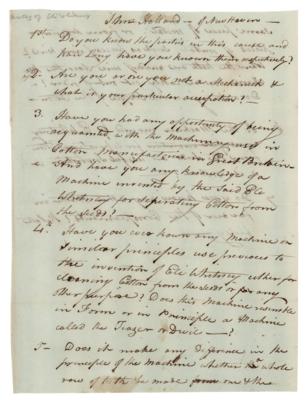 Holland – of New Haven –
1st Do you know the parties in this cause and
how Long have you known them respectively?
2d – Are you or are you not a Mechanick &
what is your particular occupation?
3. Have you had any opportunity of being
acquainted with the Machinery used in
Cotton Manufactories in Great Britain –
And have you any knowledge of a
Machine invented by the said Eli
Whitney for seperating Cotton from
the seeds?
4th Have you ever known any Machine on
similar principles use previous to
the invention of Eli Whitney either for
cleaning Cotton from the seeds or for any
other purpose? Does this Machine resemble
in Form or in Principle a Machine
called the Teazer or Devil – ?
5 – Does it make any difference in the
principle of the Machine whether a whole
row of teeth be made from one & the